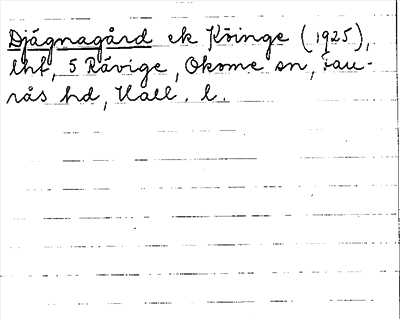 Djägnagård ek Köinge (1925),
lhf, 5 Rävige, Okome sn, Fau-
rås hd, Hall. l.